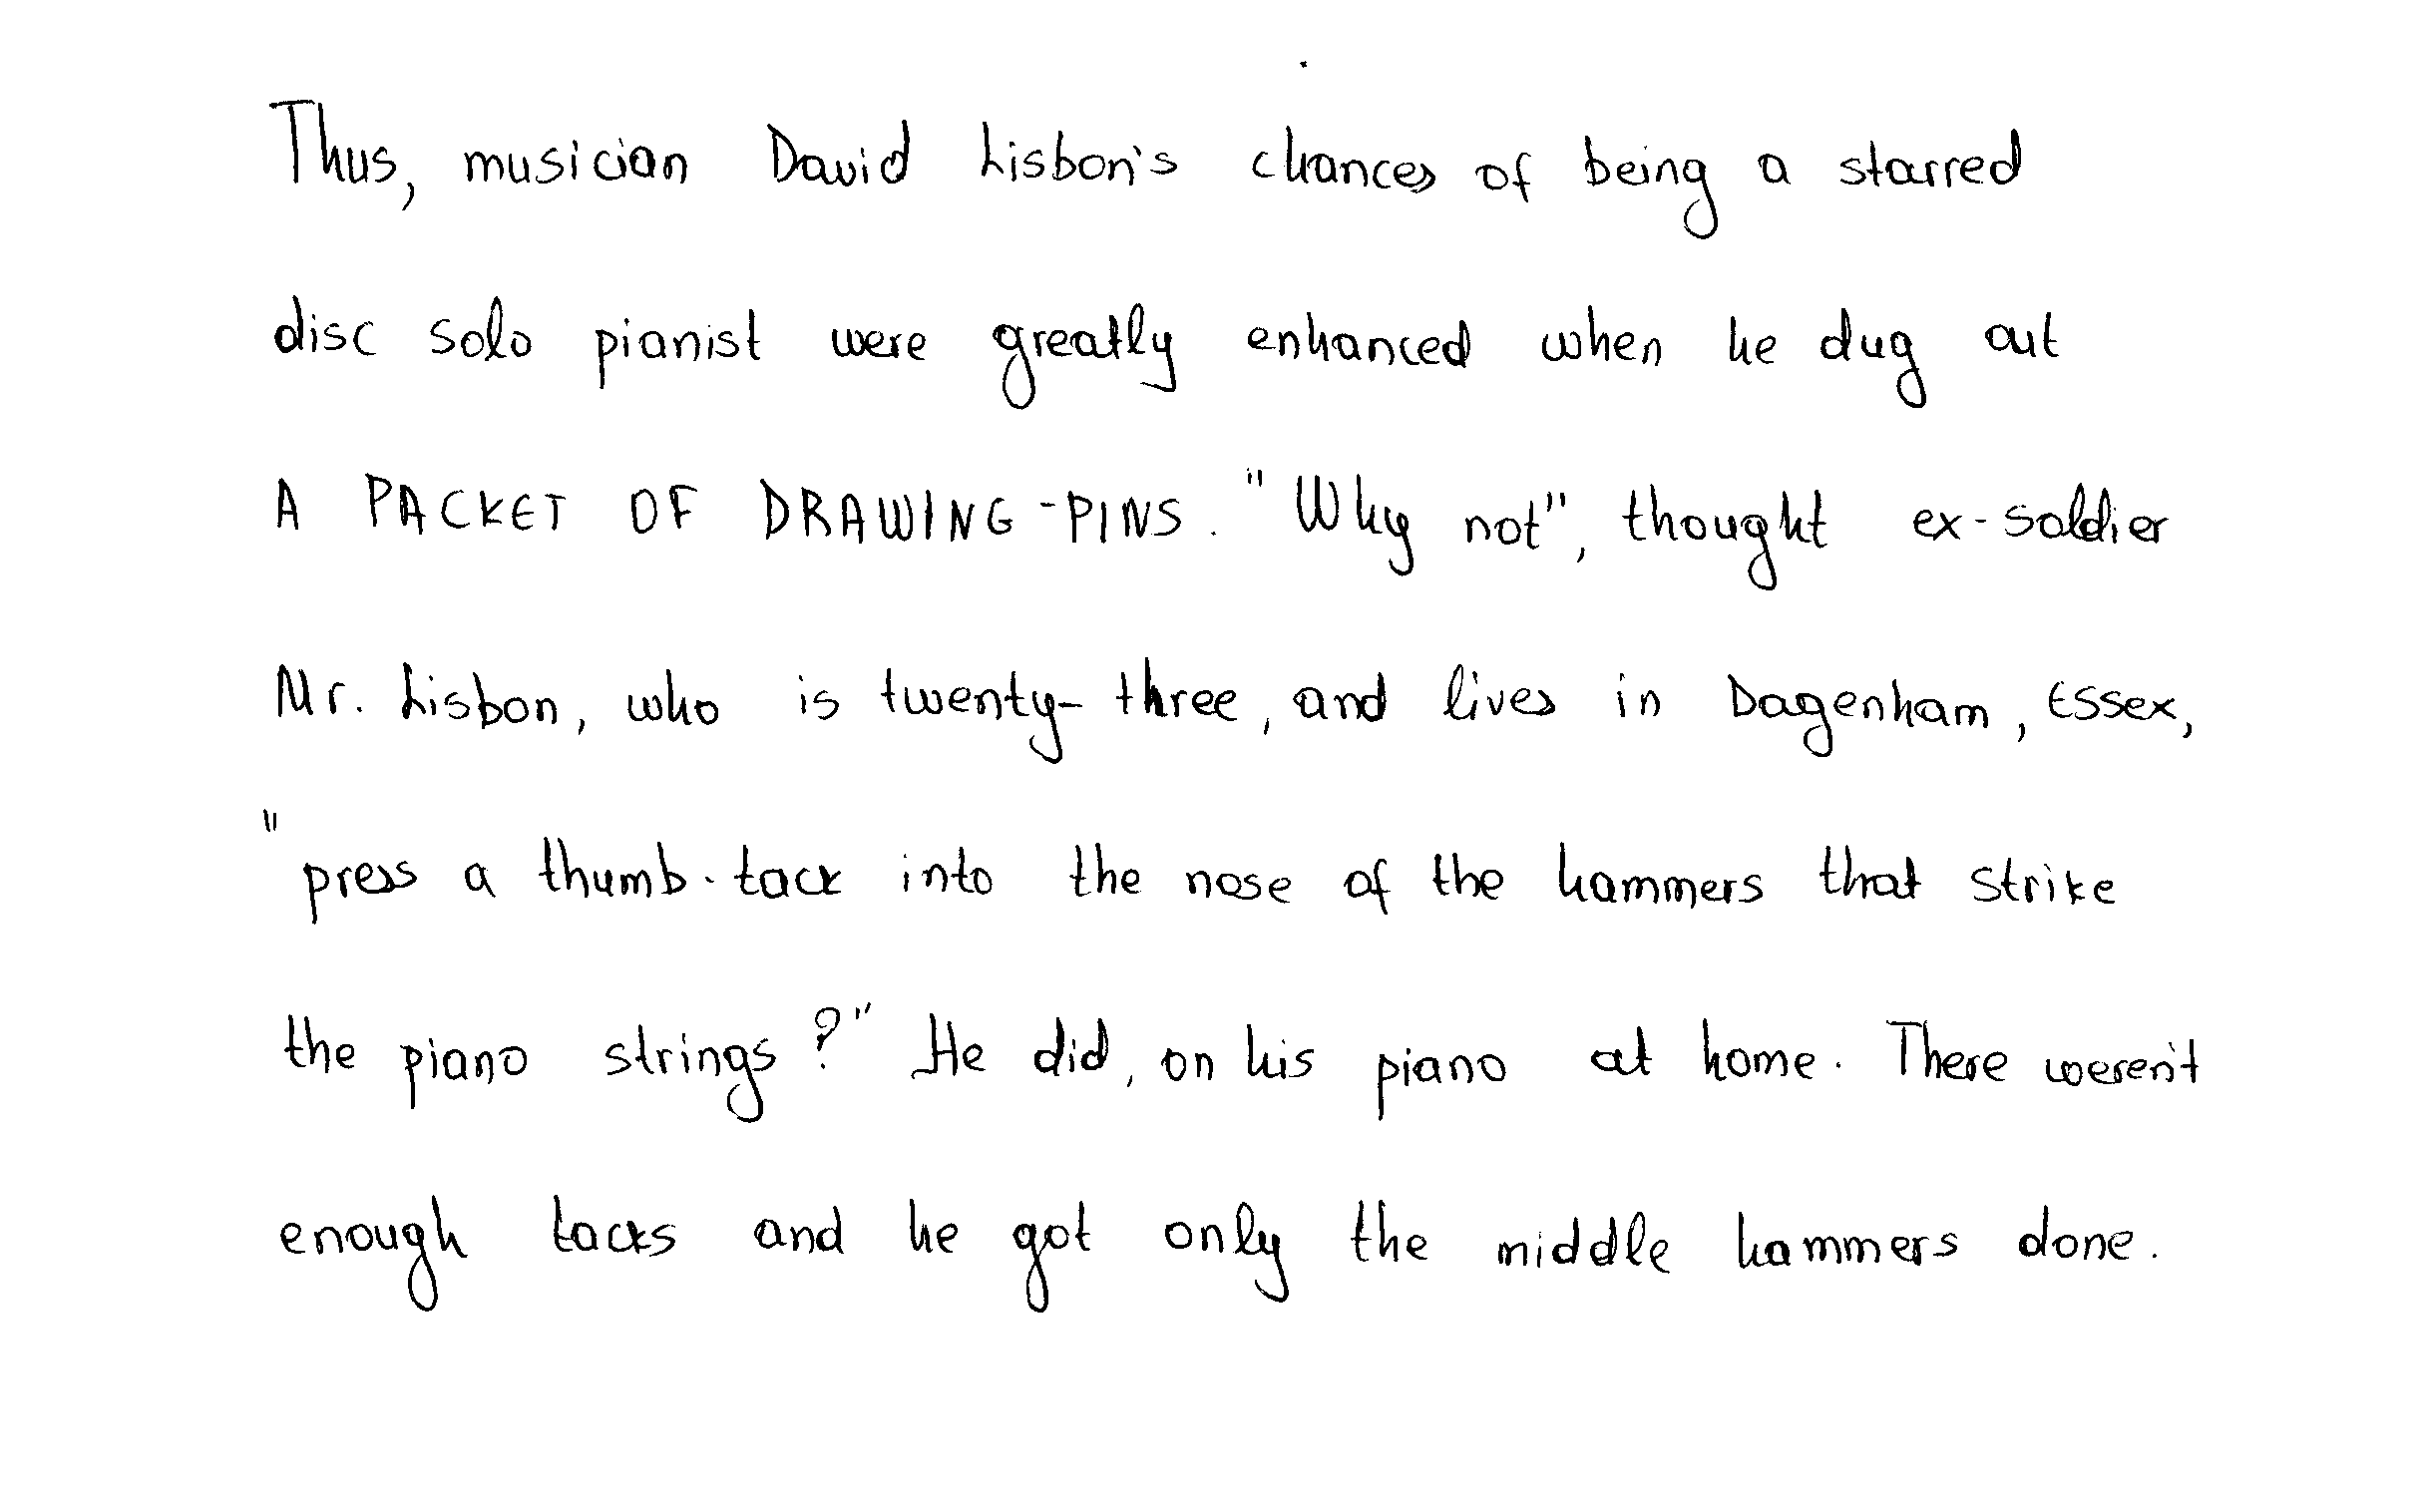 Thus, musician David Lisbon's chances of being a starred
disc solo pianist were greatly enhanced when he dug out
A PACKET OF DRAWING-PINS. "Why not", thought ex-soldier
Mr. Lisbon, who is twenty-three, and lives in Dagenham, Essex,
"press a thumb-tack into the nose of the hammers that strike
the piano strings?" He did, on his piano at home. There weren't
enough tacks and he got only the middle hammers done.